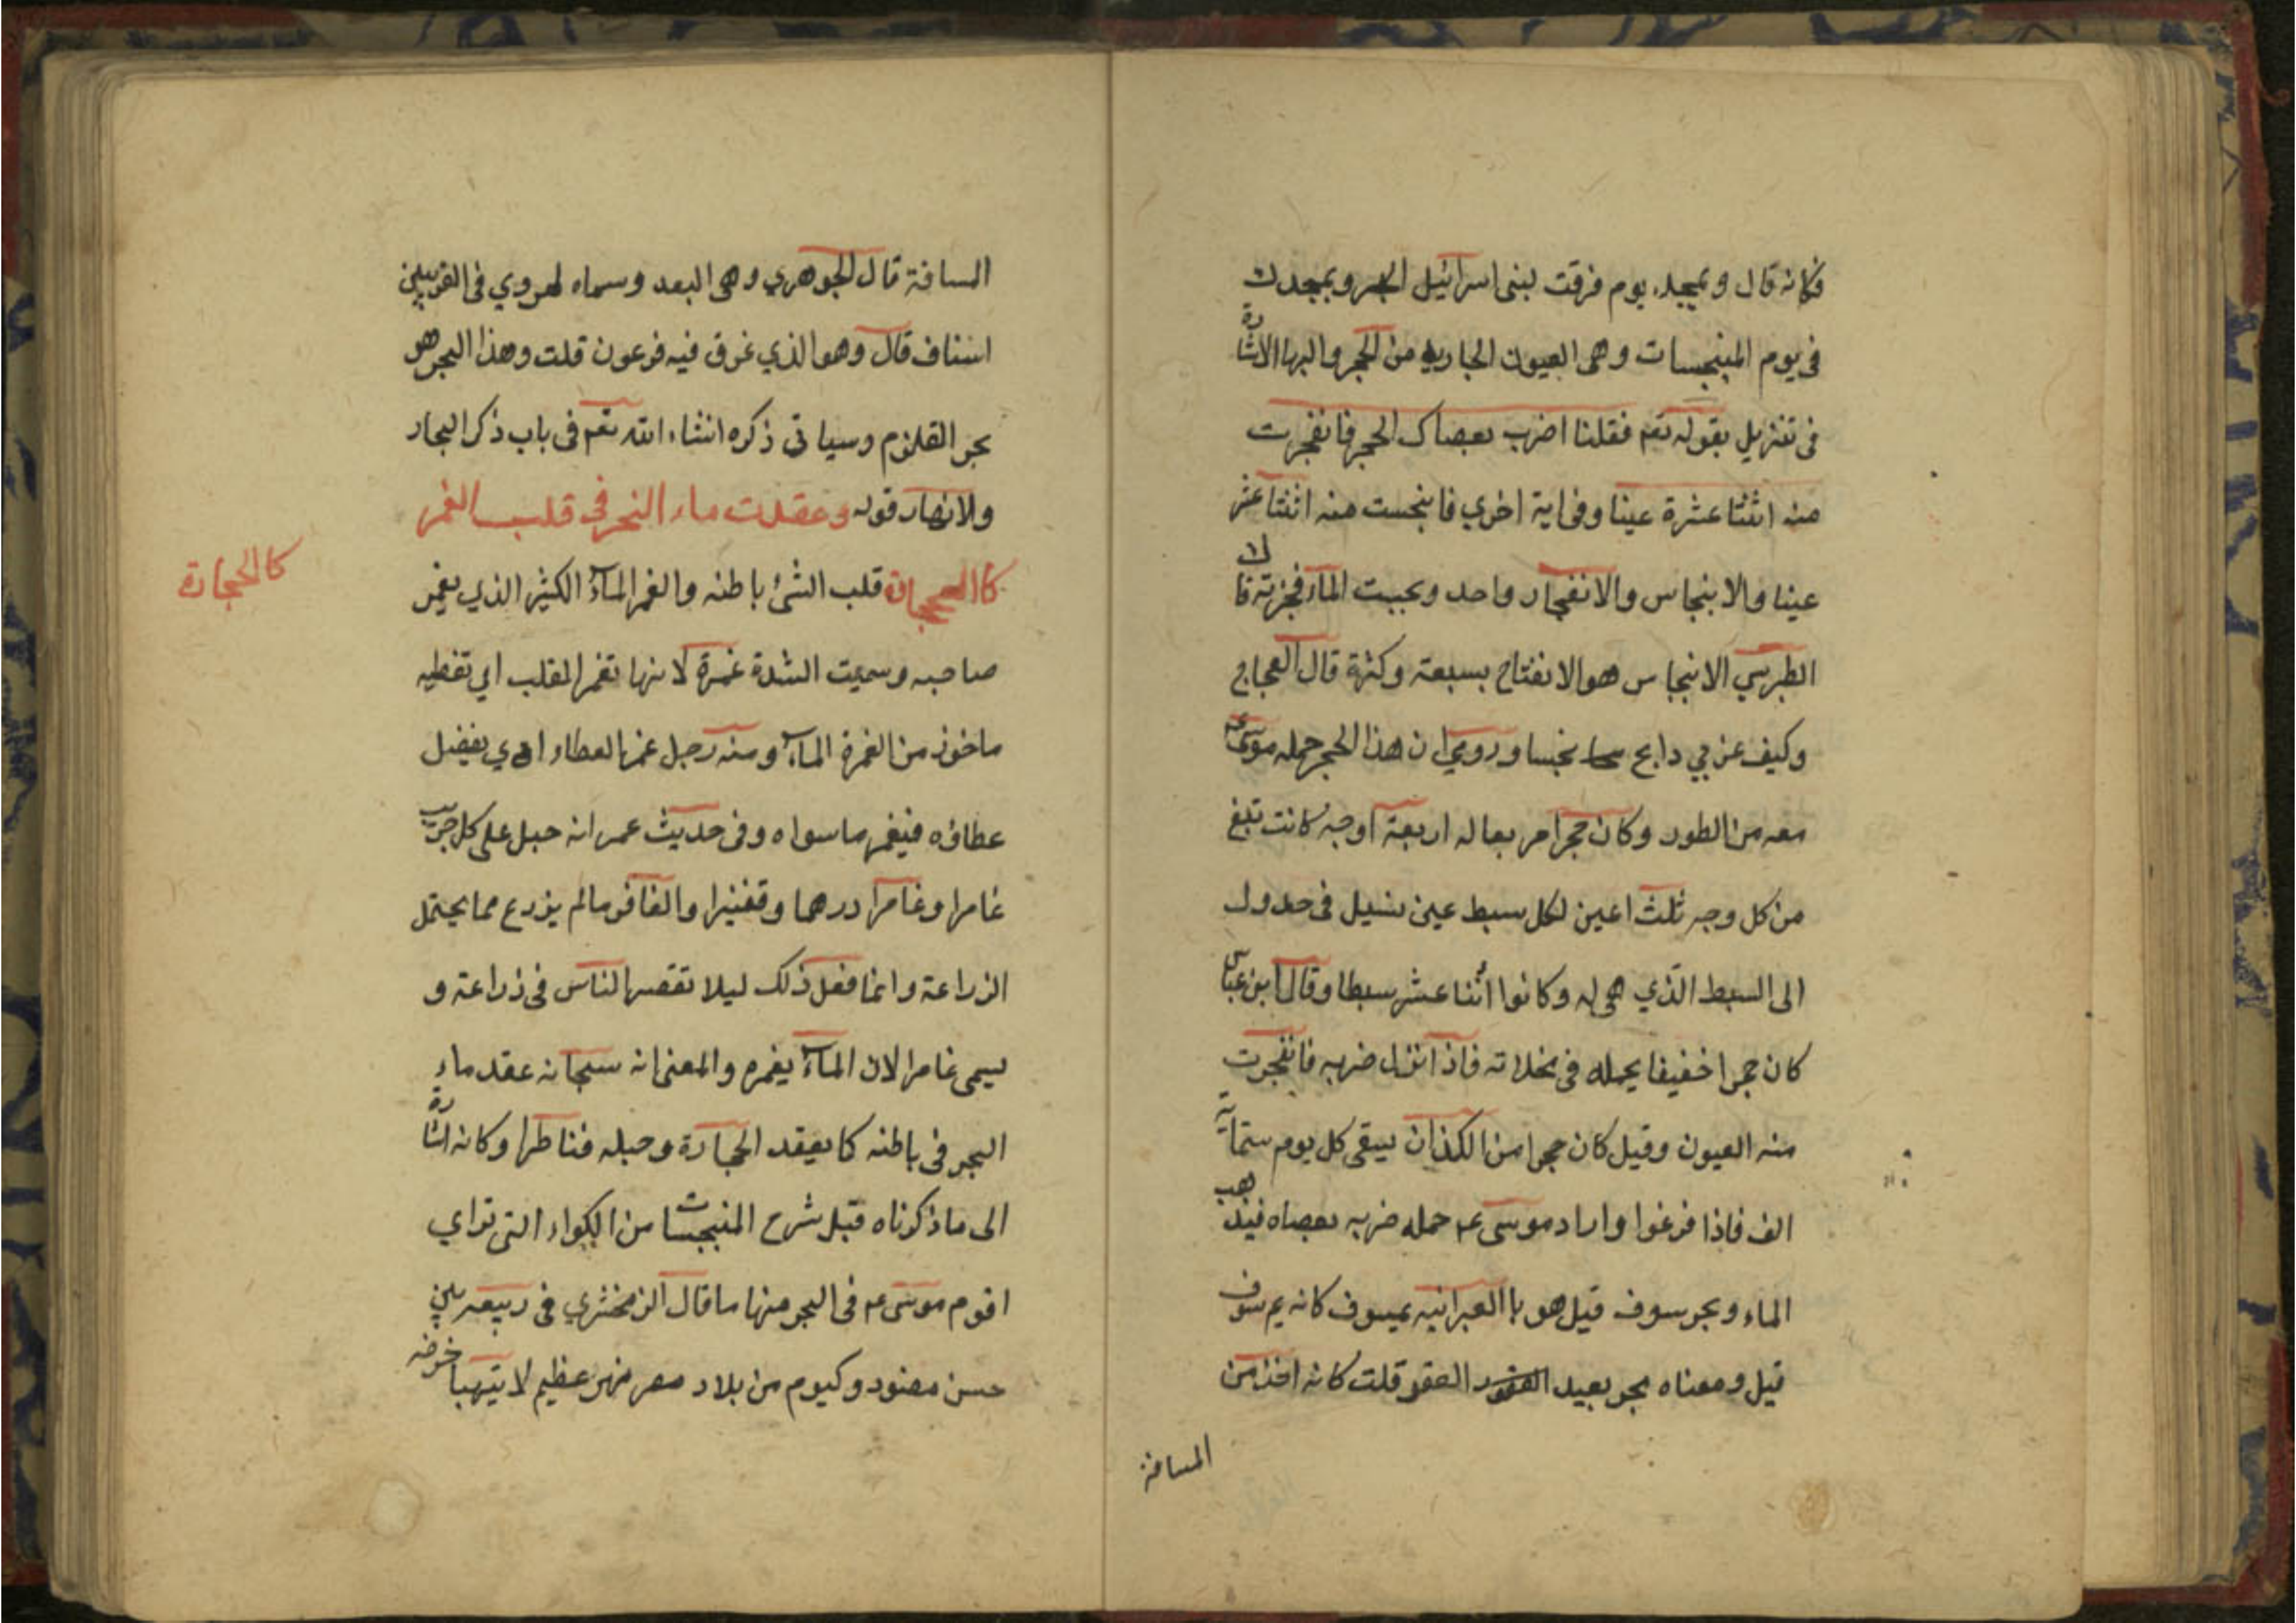 فكانه قال وبمجد يوم فرقت لبنى اسرائيل البحر وبمجدك
فى يوم المنبجسات وهى العيون الجارية من الحجر واليها الاشارة
فى تنزيل بقوله تعم فقلنا اضرب بعصاك الحجر فانفجرت
منه اثنتا عشرة عينا وفى اية اخري فانبجست منه اثنتا عشر
عينا والانبجاس والانفجار واحد وبجست الماء فجرته قال
الطبرسي الانبجاس هو الانفتاح بسعة وكثرة قال العجاج
وكيف غربي دالج تبجسا وروي ان هذا الحجر حمله موسى ع
معه من الطور وكان حجرا مربعا له اربعة اوجه كانت تنبع
من كل وجه ثلث اعين لكل سبط عين تسيل فى جدول
الى السبط الذي هى له وكانوا اثنا عشر سبطا وقال ابن عباس
كان حجرا خفيفا يحمله فى مخلاته فاذا نزل ضربه فانفجرت
منه العيون وقيل كان حجرا من الكذان يسقى كل يوم ستماية
الف فاذا فرغوا واراد موسى ع حمله ضربه بعصاه فيذهب
الماء وبحر سوف قيل هو باالعبرانيه يمسوف كانه يم سوف
قيل ومعناه بحر بعيد القعر قلت كانه اخذ من
المسافة
المسافة قال الجوهري وهى البعد وسماه لهروي فى الغريبين
اسناف قال وهو الذي غرق فيه فرعون قلت وهذا البحر هو
بحر القلزم وسياتى ذكره انشاء الله تعم فى باب ذكر البحار
والانهار قوله وعقدت ماء البحر فى قلب الغمر
كاالحجارة قلب الشئ باطنه والغمر الماء الكثير الذي يغمر
كالحجارة
صاحبه وسميت الشدة غمرة لانها تغمر القلب اي تغطيه
ماخوذ من الغمرة الماء ومنه رجل غمر العطاء اي يفضل
عطاؤه فيغمر ما سواه وفى حديث عمر انه جعل على كل جريب
عامرا وغامرا درهما وقفيزا والغامر ما لم يزرع مما يحتمل
الزراعة وانما فعل ذلك ليلا تقصر الناس فى زراعة و
يسمى غامرا لان الماء يغمره والمعنى انه سبحانه عقد ماء
البحر فى باطنه كما يعقد الحجارة وجعله قناطرا وكانه اشارة
الى ما ذكرناه قبل شرح المنبجسات من الكواء التى تراي
اقوم موسى ع فى البحر منها ما قال الزمخشري فى ربيعه بين
حسن منصور وكيوم من بلاد مصر نهر عظيم لا يتهيا خوضه